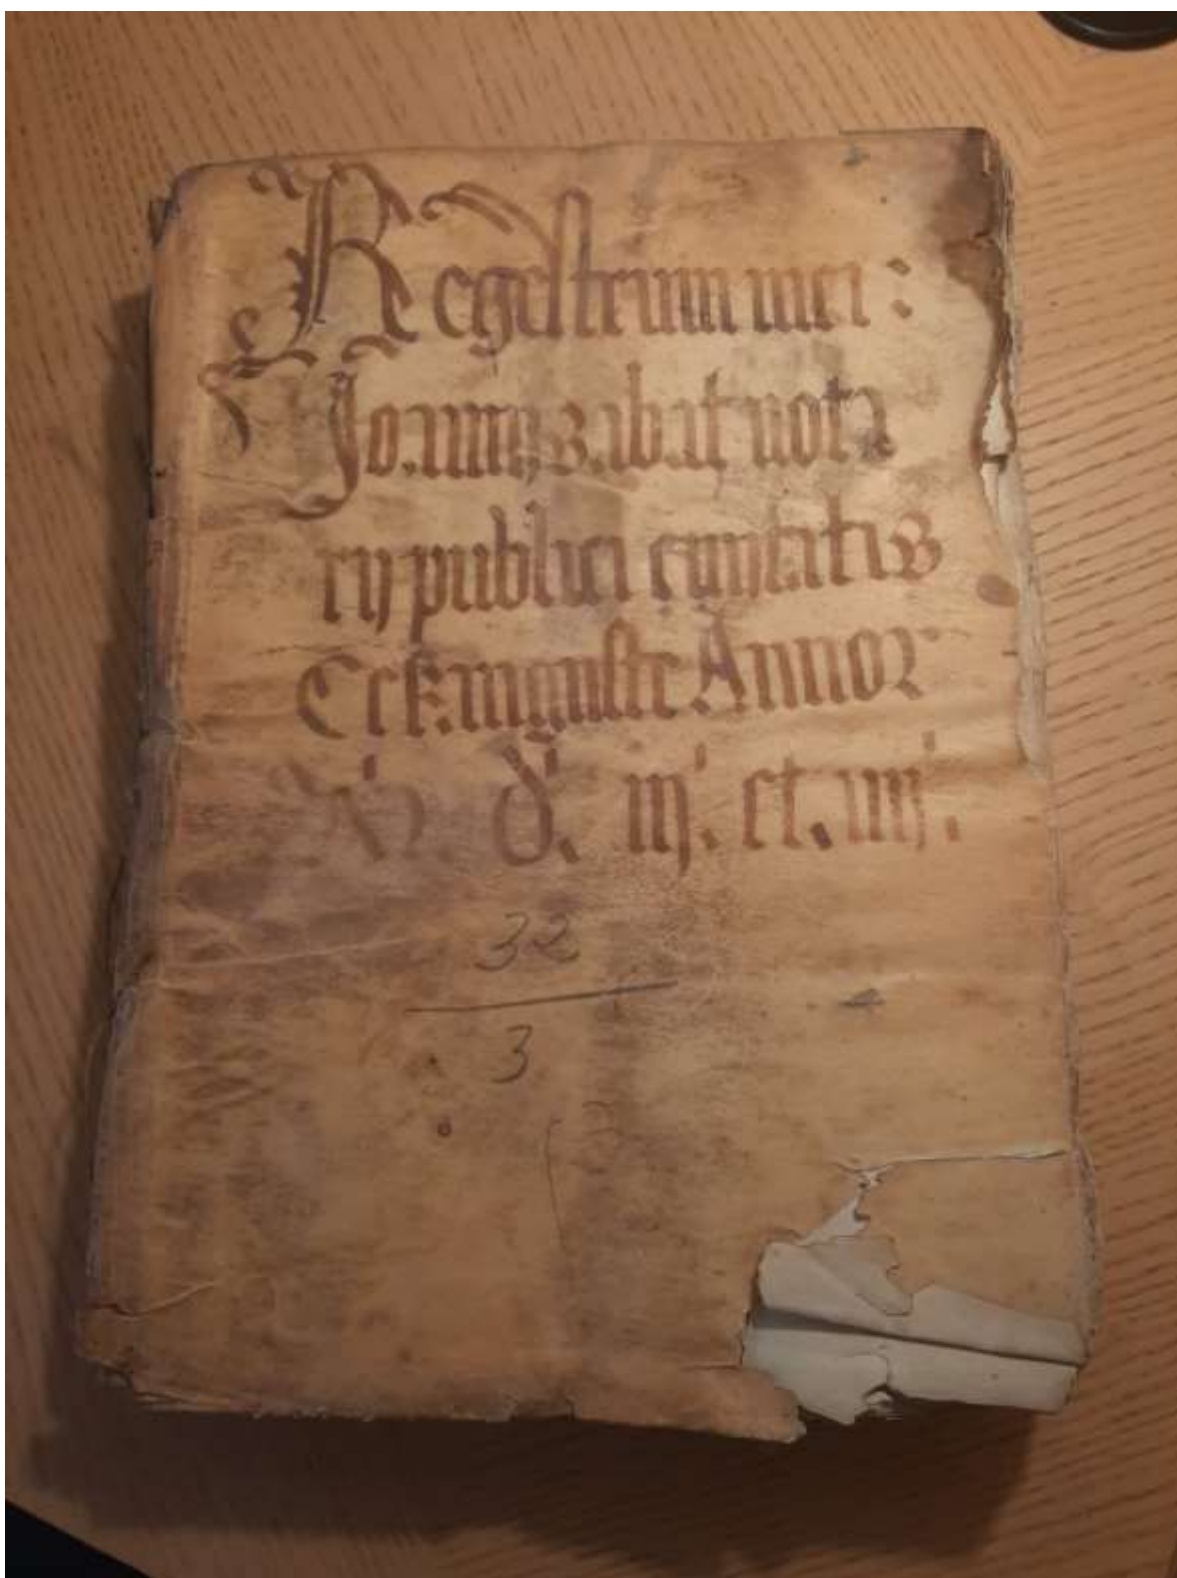 Regestrum mei :
Joannis sabat nota
rij publici ciuitatis
Cesarauguste Annor
M d. iij. et. iiij.
32
3